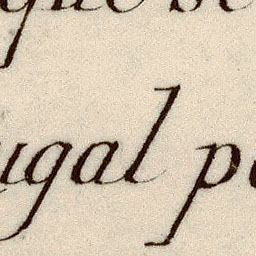 que se
ugal pa